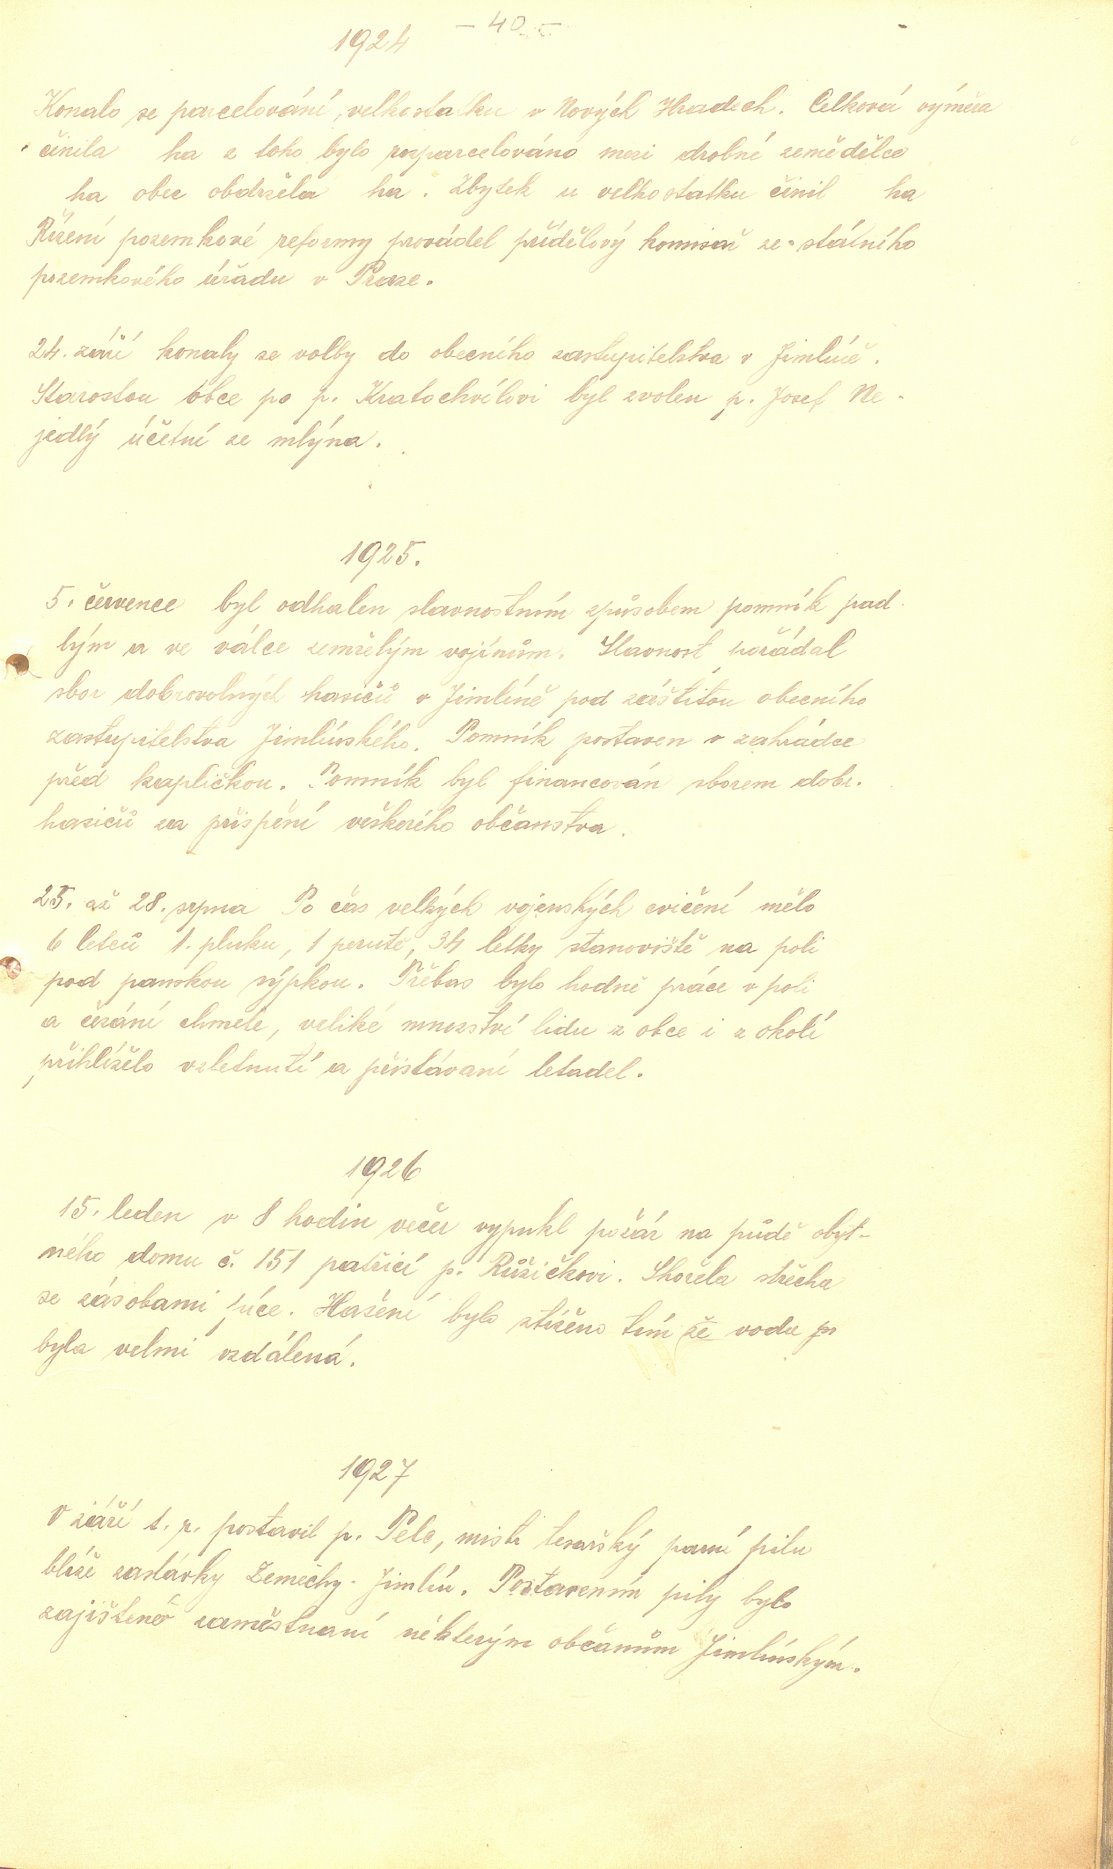 – 40. –
1924
Konalo se parcelování velkostatku v Nových Hradech. Celková výměra
činila ha z toho bylo rozparcelováno mezi drobné zemědělce
ha obec obdržela ha. Zbytek u velkostatku činil ha
Řízení pozemkové reformy prováděl přídělový komisař ze státního
pozemkového úřadu v Praze.
24. září konaly se volby do obecního zastupitelstva v Jimlíně.
Starostou obce po p. Kratochvílovi byl zvolen p. Josef Ne-
jedlý účetní ze mlýna.
1925.
5. července byl odhalen slavnostním způsobem pomník pad-
lým a ve válce zemřelým vojínům. Slavnost pořádal
sbor dobrovolných hasičů v Jimlíně pod záštitou obecního
zastupitelstva Jimlínského. Pomník postaven v zahrádce
před kapličkou. Pomník byl financován sborem dobr.
hasičů za přispění veškerého občanstva.
25. až 28. srpna Po čas velkých vojenských cvičení mělo
6 letců 1. pluku, 1 perutě, 34 letky stanoviště na poli
pod panskou sýpkou. Třebas bylo hodně práce v poli
a česání chmele, veliké množství lidu z obce i z okolí
přihlíželo vzletnutí a přistávaní letadel.
1926
15. leden v 8 hodin večer vypukl požár na půdě obyt-
ného domu č. 151 patřící p. Růžičkovi. Shořela střecha
se zásobami píce. Hašení bylo ztíženo tím že voda
byla velmi vzdálená.
1927
V září t. r. postavil p. Pelc, mistr tesařský parní pilu
blíže zastávky Zeměchy-Jimlín. Postavením pily bylo
zajištěno zaměstnaní některým občanům Jimlínským.